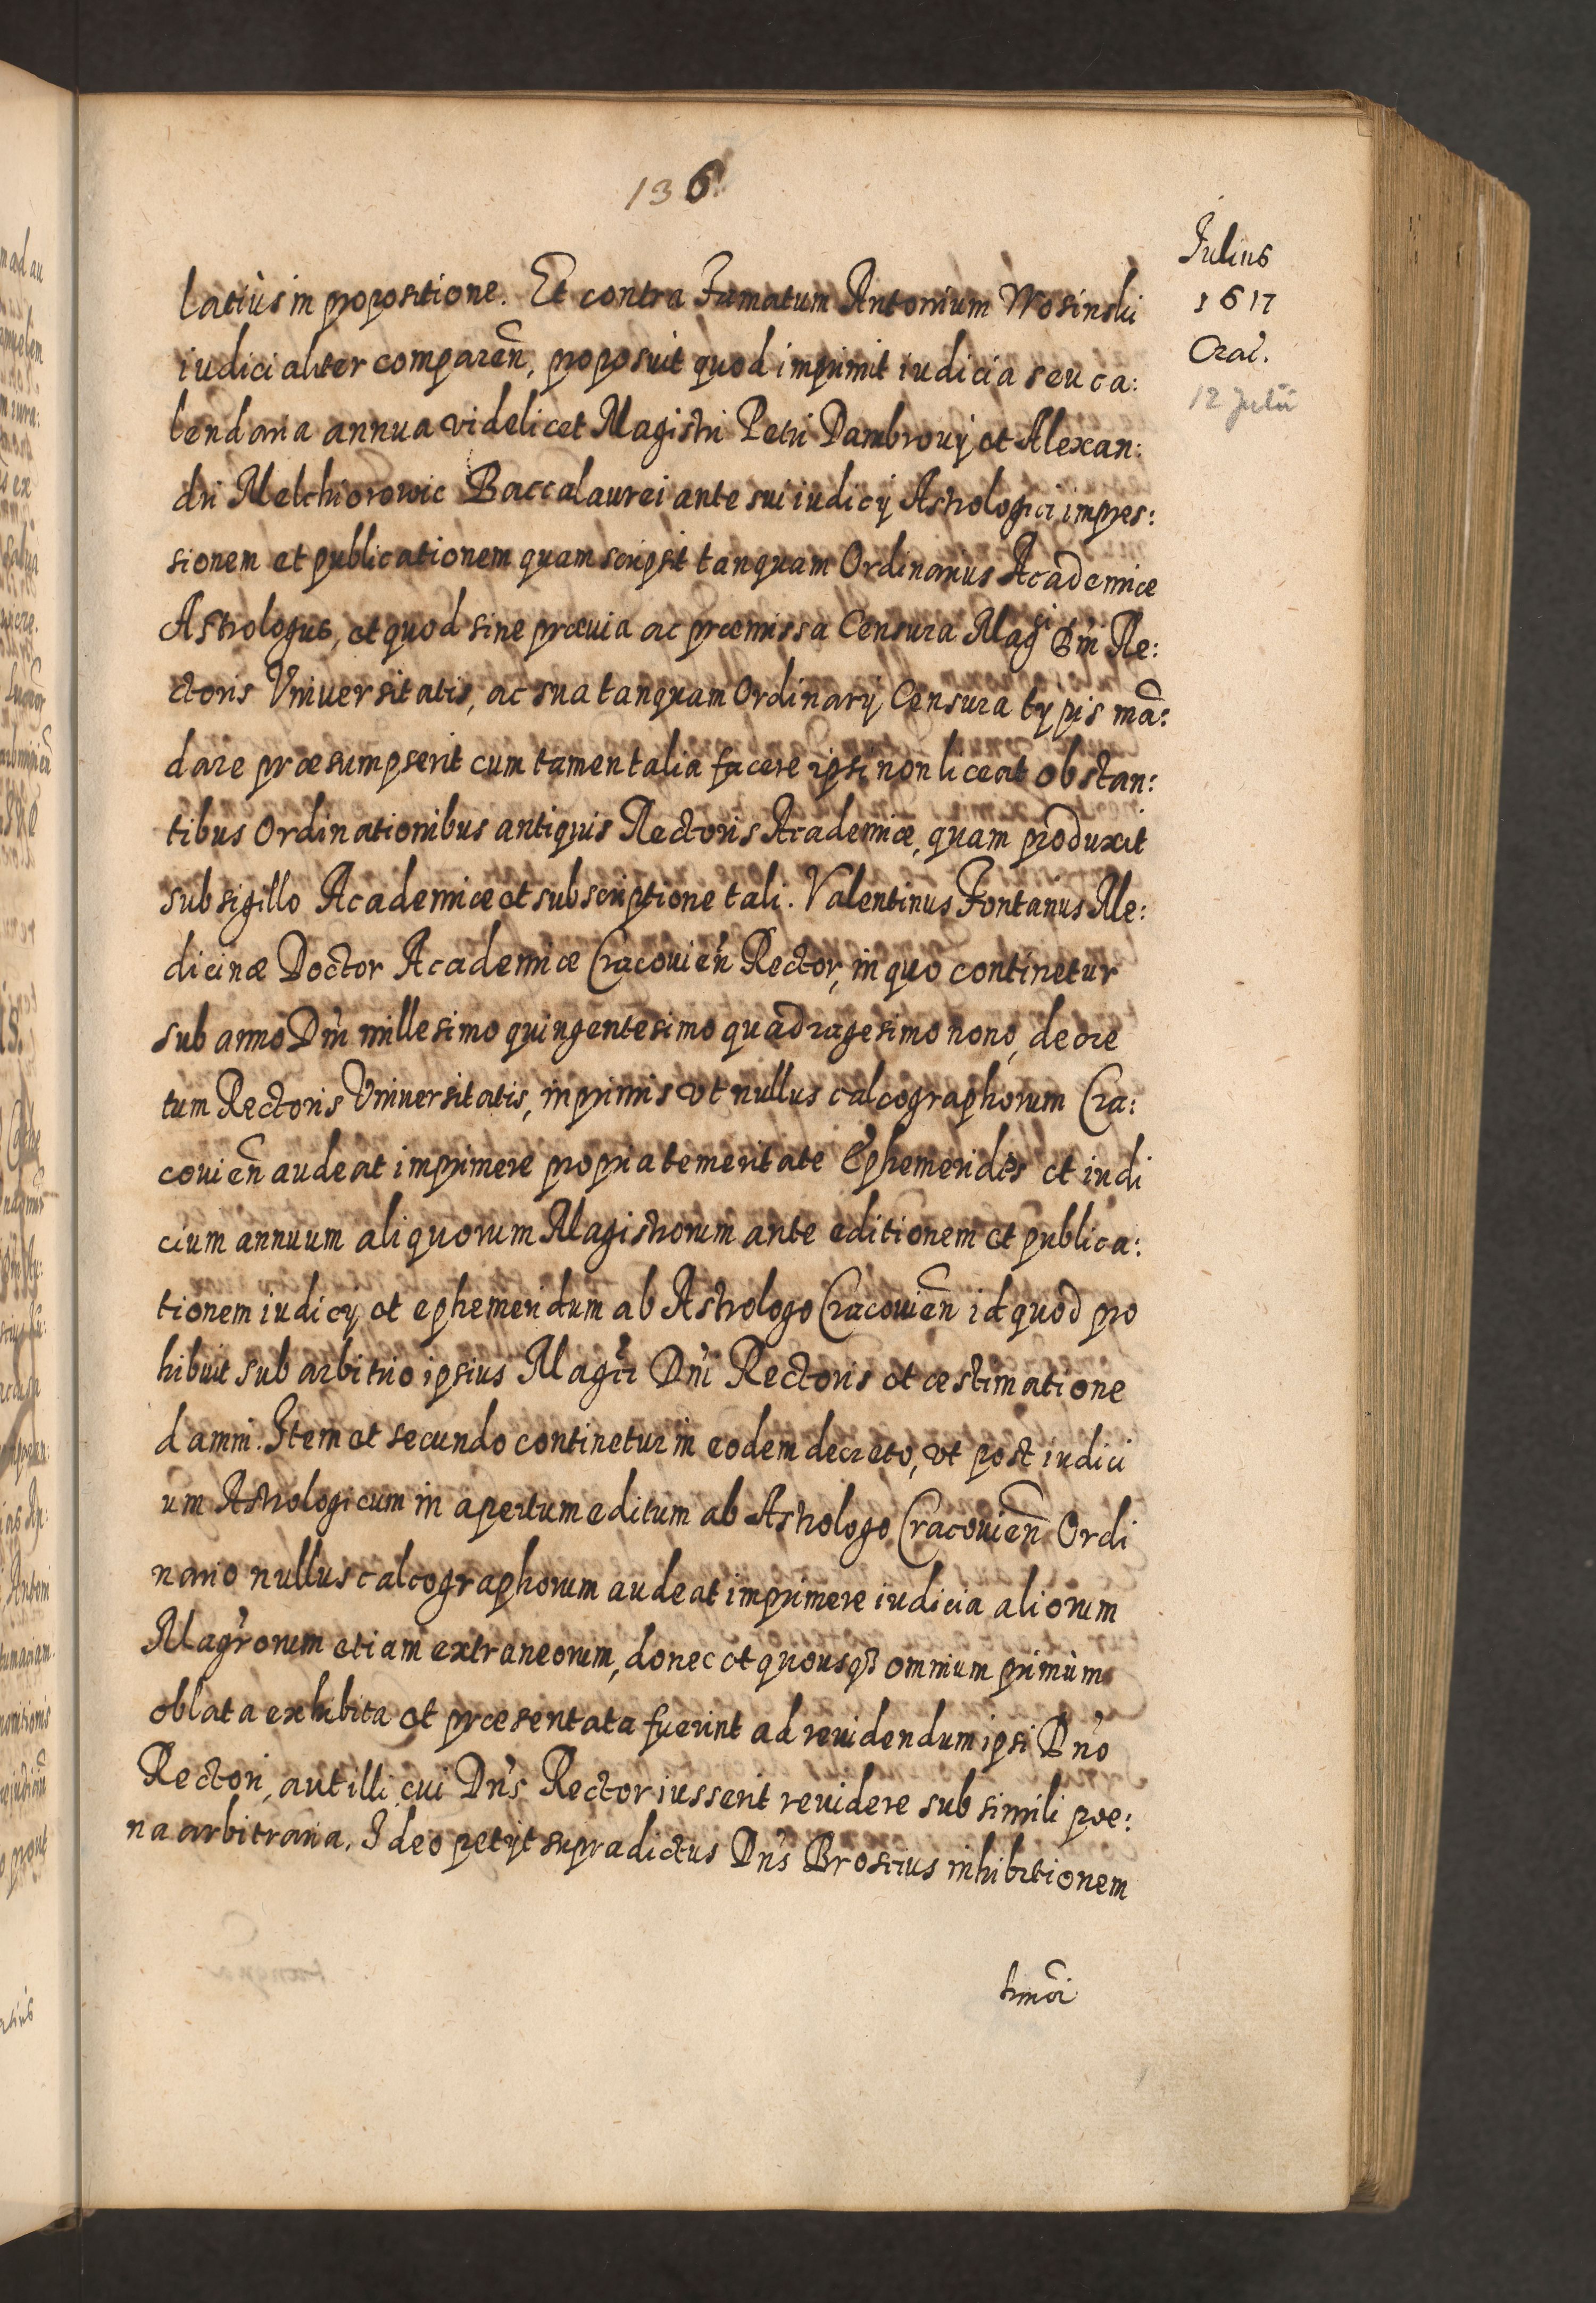 136
Iulius
1617
Crac.
12 Julii
latiùs in propositione. Et contra Famatum Antonium Wosinski
iudicialiter comparen̄, proposuit quod imprimit iudicia seu ca:
lendaria annua videlicet Magistri Petri Dambrouÿ et Alexan:
dri Melchiorowic Baccalaurei ante sui iudicÿ Astrologici impres:
sionem et publicationem quam scripsit tanquam Ordinarius Academiæ
Astrologus, et quod sine præuia ac præmissa Censura Magci Dn̄i Re:
ctoris Vniuersitatis, ac sua tanquam Ordinarÿ Censura typis mā:
dare præsumpserit cum tamen talia facere ipsi non liceat obstan:
tibus Ordinationibus antiquis Rectoris Academiæ, quam produxit
sub sigillo Academiæ et subscriptione tali. Valentinus Fontanus Me:
dicinæ Doctor Academiæ Cracouien̄ Rector, in quo continetur
sub anno Dn̄i millesimo quingentesimo quadragesimo nono, decre
tum Rectoris Vniuersitatis, inprimis vt nullus calcographorum Cra:
couien̄ audeat imprimere propria temeritate Ephemerides et iudi
cium annuum aliquorum Magistrorum ante editionem et publica:
tionem iudicÿ et ephemeridum ab Astrologo Cracouien̄ id quod pro
hibuit sub arbitrio ipsius Magci Dn̄i Rectoris et æstimatione
damni. Item et secundo continetur in eodem decreto, vt post iudici
um Astrologicum in apertum editum ab Astrologo Cracouien̄ Ordi
nario nullus calcographorum audeat imprimere iudicia aliorum
Magr̄orum etiam extraneorum, donec et quousq3 omnium primùm
oblata exhibita et præsentata fuerint ad reuidendum ipsi Dn̄o
Rectori, aut illi cui Dn̄s Rector iusserit reuidere sub simili poe:
na arbitraria. Ideo petÿt supradictus Dn̄s Broscius inhibitionem
hmōi